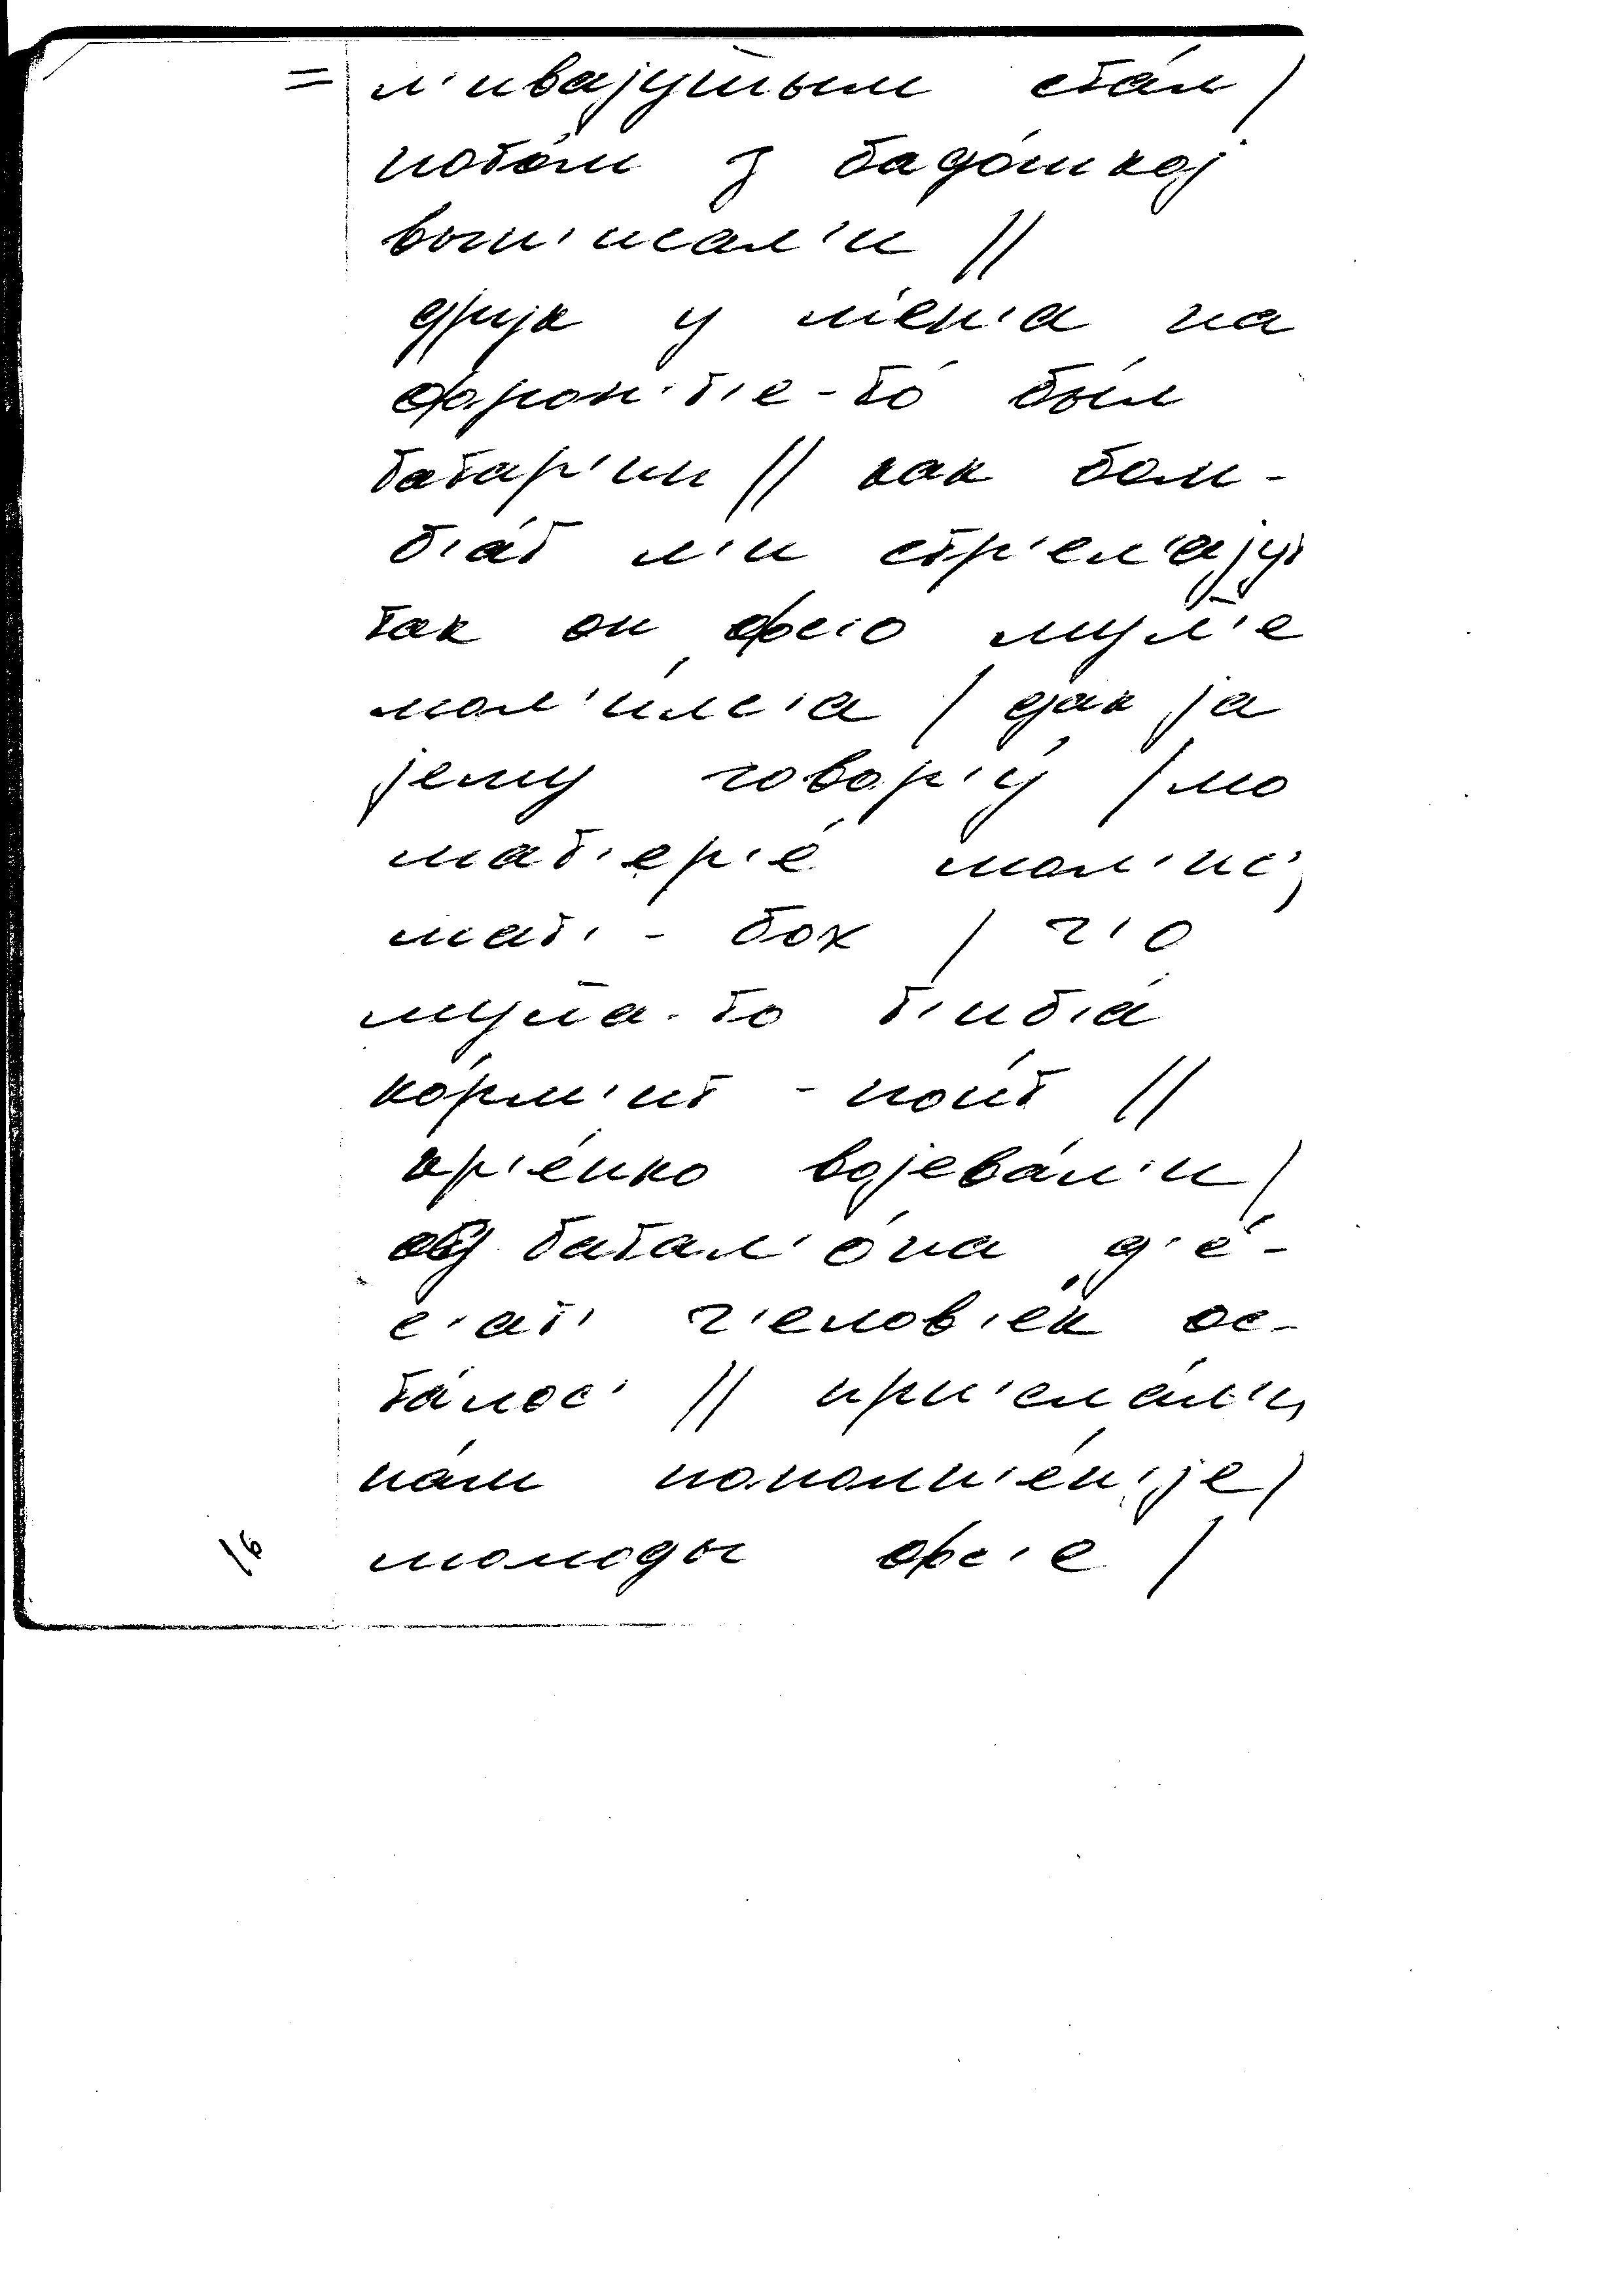 = л'ивајушшым ста́л /
пото́м з бадо́шкој
вып'исал'и //
друк у м'ен'а на
фрон'т'е-то́ бы́л
татар'ин // как бом-
б'а́т л'и стр'ел'ајут
так он фс'о мул'е
мол'и́лс'а / дак ја
јему говор'у́ / мо
мат'ер'е́ мол'ис',
мат' - бох / ч'о
мула-то т'иб'а́
ко́рм'ит - пои́т //
кр'е́пко војева́л'и /
об батал'о́на д'е́-
с'ат' ч'елов'е́к ос-
та́лос' // присла́л'и
на́м пополн'е́н'ије /
молоды фс'е /
16